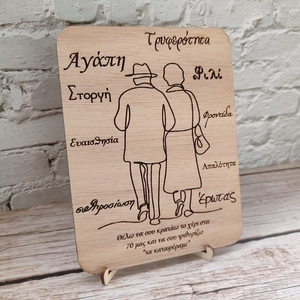 Τρυφερότητα
Αγάπη
Φιλί
Στοργή
Φροντίδα
Ευαισθησία
Απαλότητα
αφοσίωση
Έρωτας
Θέλω να σου κρατάω το χέρι στα
70 μας και να σου ψιθυρίζω
"τα καταφέραμε"